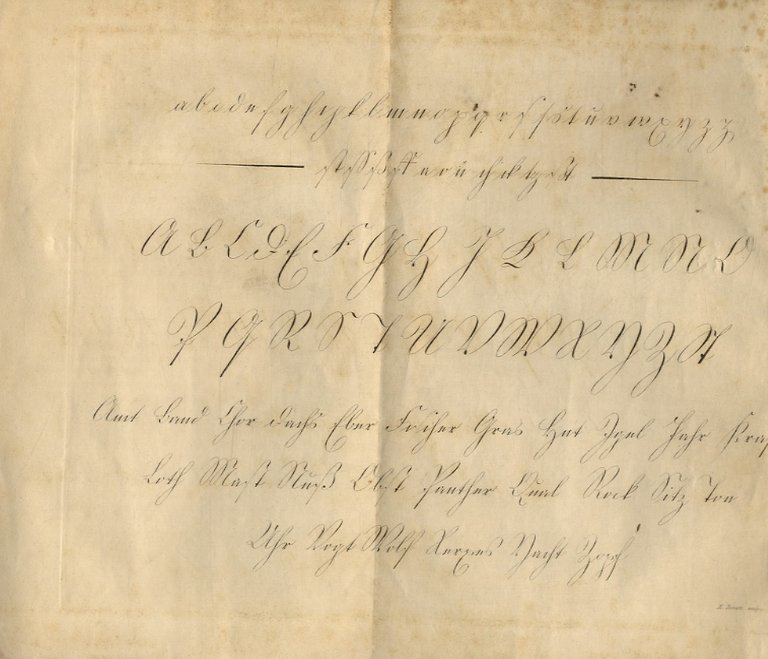 a b c d e f g h i j k l m n o p q r s ſ s t u v w x y z
ſt ſſ ß ä ö ü ch ck tz
A B C D E F G H J K L M N O
P Q R S T U V W X Y Z St
Amt Band Chor Dachs Eber Fächer Gras Hut Igel Jahr
Loth Mast Nuß Obst Panther Qual Rock Sitz Ton
Uhr Vogt Wolf Xerxes Yacht Zopf